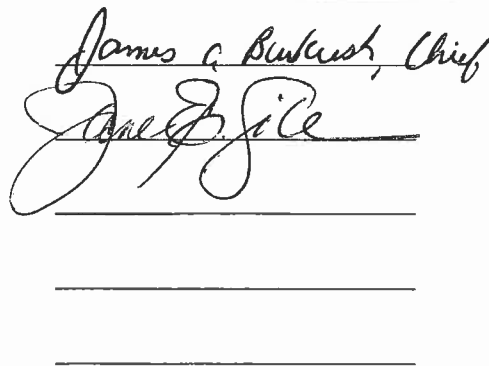 James A Burkush, Chief
Jane